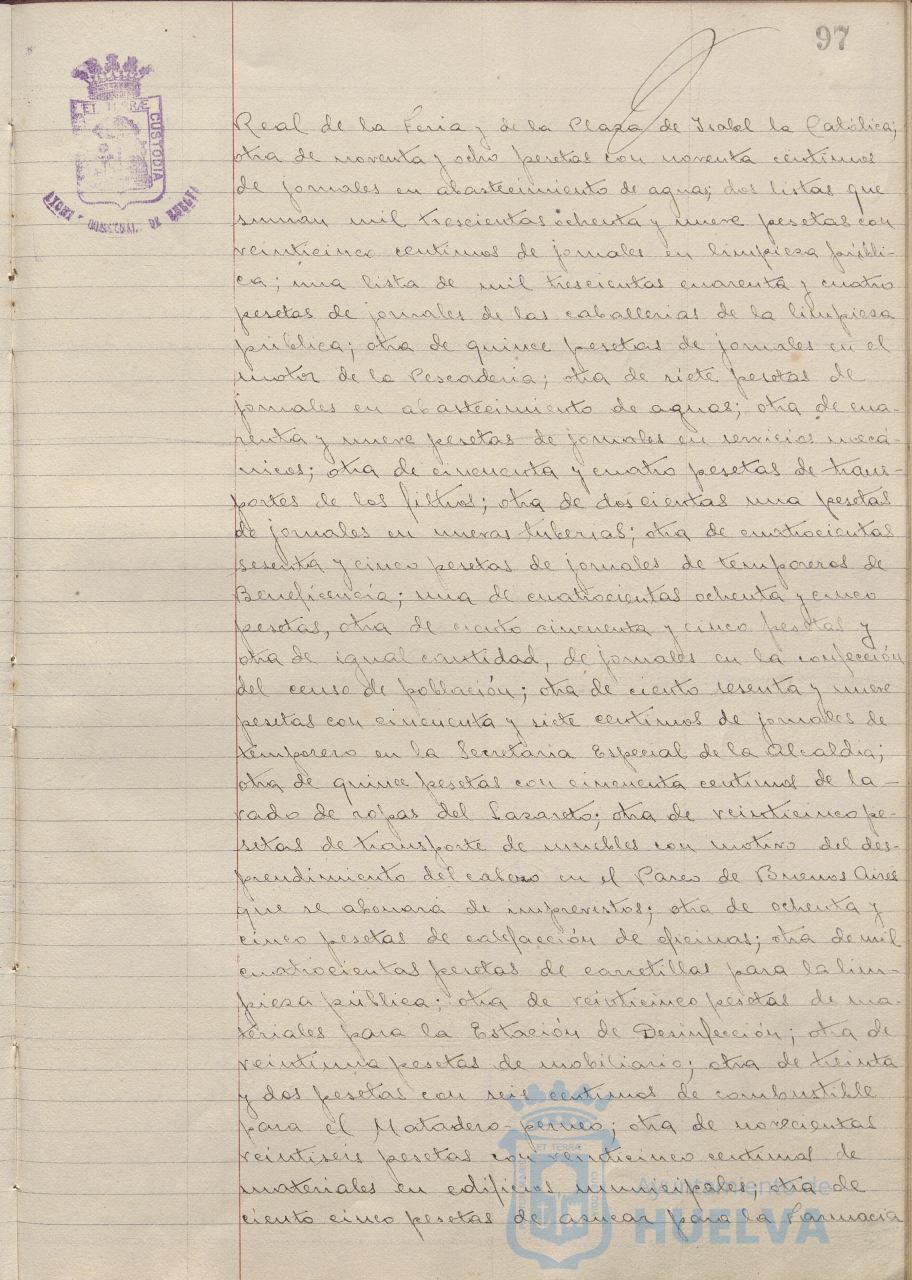 97
ET TERRÆ
CUSTODIA
DE HUELVA
Real de la Feria y de la Plaza de Isabel la Católica;
otra de noventa y ocho pesetas con noventa centimos
de jornales en abastecimiento de agua; dos listas que
suman mil trescientas ochenta y nueve pesetas con
veinticinco centimos de jornales en limpieza públi-
ca; una lista de mil trescientas cuarenta y cuatro
pesetas de jornales de las caballerias de la limpieza
pública; otra de quince pesetas de jornales en el
motor de la Pescaderia; otra de siete pesetas de
jornales en abastecimiento de aguas; otra de cua-
renta y nueve pesetas de jornales en servicios mecá-
nicos; otra de cincuenta y cuatro pesetas de trans-
portes de los filtros; otra de doscientas una pesetas
de jornales en nuevas tuberias; otra de cuatrocientas
sesenta y cinco pesetas de jornales de temporeros de
Beneficencia; una de cuatrocientas ochenta y cinco
pesetas, otra de ciento cincuenta y cinco pesetas y
otra de igual cantidad, de jornales en la confección
del censo de población; otra de ciento sesenta y nueve
pesetas con cincuenta y siete centimos de jornales de
temporero en la Secretaria Especial de la Alcaldia;
otra de quince pesetas con cincuenta centimos de la-
vado de ropas del Lazareto; otra de veinticinco pe-
setas de transporte de muebles con motivo del des-
prendimiento del cabezo en el Paseo de Buenos Aires
que se abonará de imprevistos; otra de ochenta y
cinco pesetas de calefacción de oficinas; otra de mil
cuatrocientas pesetas de carretillas para la lim-
pieza pública; otra de veinticinco pesetas de ma-
teriales para la Estación de Desinfección; otra de
veintiuna pesetas de mobiliario; otra de treinta
y dos pesetas con seis centimos de combustible
para el Matadero-perneo; otra de novecientas
veintiseis pesetas con veinticinco centimos de
materiales en edificios municipales; otra de
ciento cinco pesetas de azucar para la Farmacia
Ayuntamiento de
HUELVA